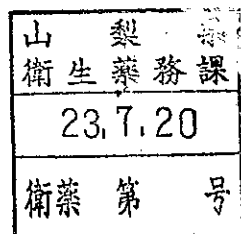 山梨県
衛生薬務課
23.7.20
衛薬第 号